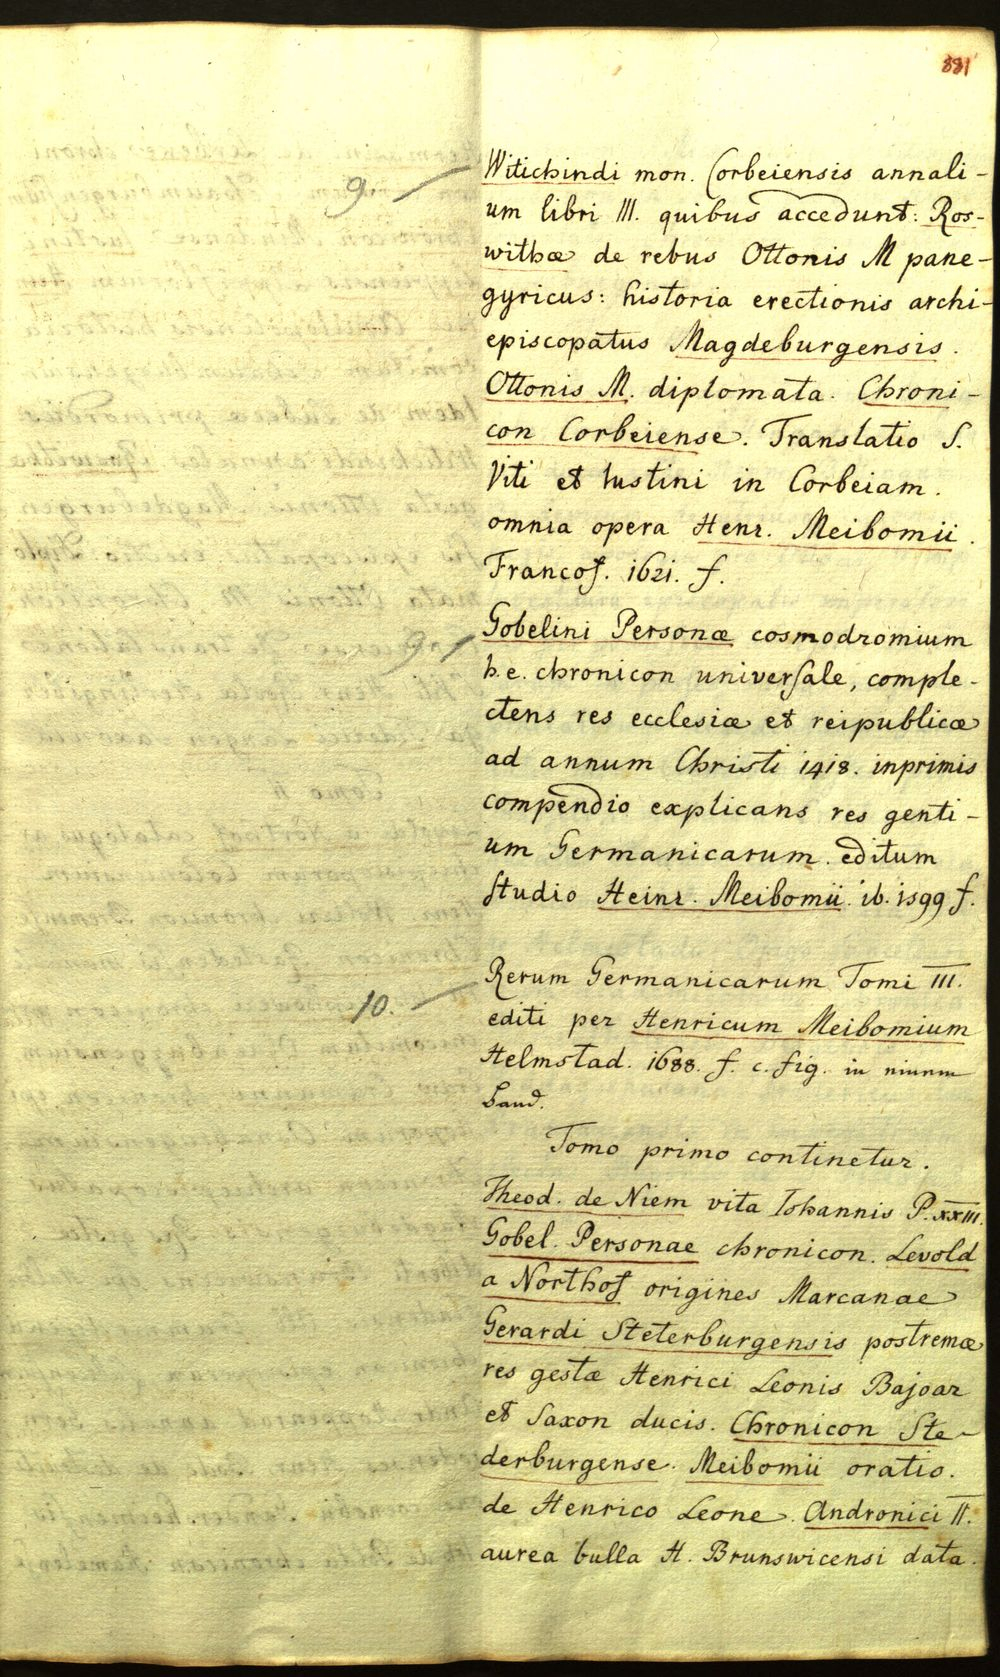 881
9. Witichindi mon. Corbeiensis annali-
um libri III. quibus accedunt: Ros-
withæ de rebus Ottonis M pane-
gyricus: historia erectionis archi-
episcopatus Magdeburgensis.
Ottonis M. diplomata. Chroni-
con Corbeiense. Translatio S.
Viti et Iustini in Corbeiam.
omnia opera Henr. Meibomii.
Francof. 1621. f.
9. Gobelini Personæ cosmodromium
h.e. chronicon universale, comple-
ctens res ecclesiæ et reipublicæ
ad annum Christi 1418. inprimis
compendio explicans res genti-
um Germanicarum. editum
studio Heinr. Meibomii. ib. 1599 f.
10. Rerum Germanicarum Tomi III.
editi per Henricum Meibomium
Helmstad. 1688. f. c. fig. in einem
Band.
Tomo primo continetur.
Theod. de Niem vita Iohannis P. XXIII.
Gobel. Personae chronicon. Levold
a Northof origines Marcanae
Gerardi Steterburgensis postremæ
res gestæ Henrici Leonis Bajoar
et Saxon ducis. Chronicon Ste-
derburgense. Meibomii oratio.
de Henrico Leone. Andronici II.
aurea bulla H. Brunswicensi data.